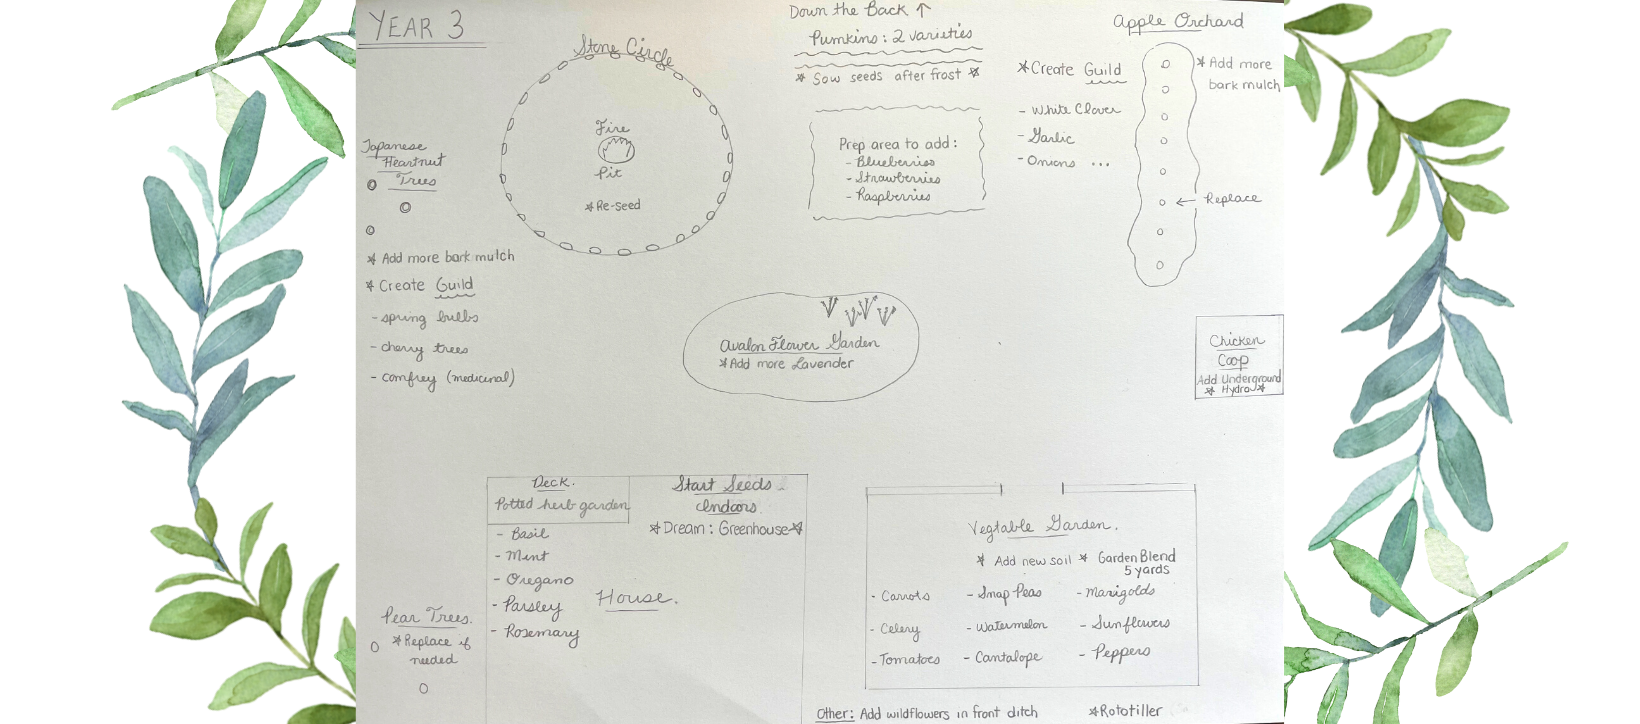 YEAR 3
Stone Circle
Fire
Pit
*Re-seed
Down the Back ↑
Pumkins: 2 varieties
* Sow seeds after frost *
Prep area to add:
- Blueberries
- Strawberries
- Raspberries
Apple Orchard
*Create Guild
- White Clover
- Garlic
- Onions ...
*Add more
bark mulch
← Replace
Japanese
Heartnut
Trees
* Add more bark mulch
* Create Guild
- spring bulbs
- cherry trees
- comfrey (medicinal)
Avalon Flower Garden
*Add more Lavender
Chicken
Coop
Add Underground
* Hydro *
Deck.
Potted herb garden
- Basil
- Mint
- Oregano
- Parsley
- Rosemary
Start Seeds
Indoors.
*Dream: Greenhouse*
House.
Pear Trees.
*Replace if
needed
Vegtable Garden.
* Add new soil * Garden Blend
5 yards
- Carrots
- Snap Peas
- Marigolds
- Celery
- Watermelon
- Sunflowers
- Tomatoes
- Cantalope
- Peppers
Other: Add wildflowers in front ditch
*Rototiller